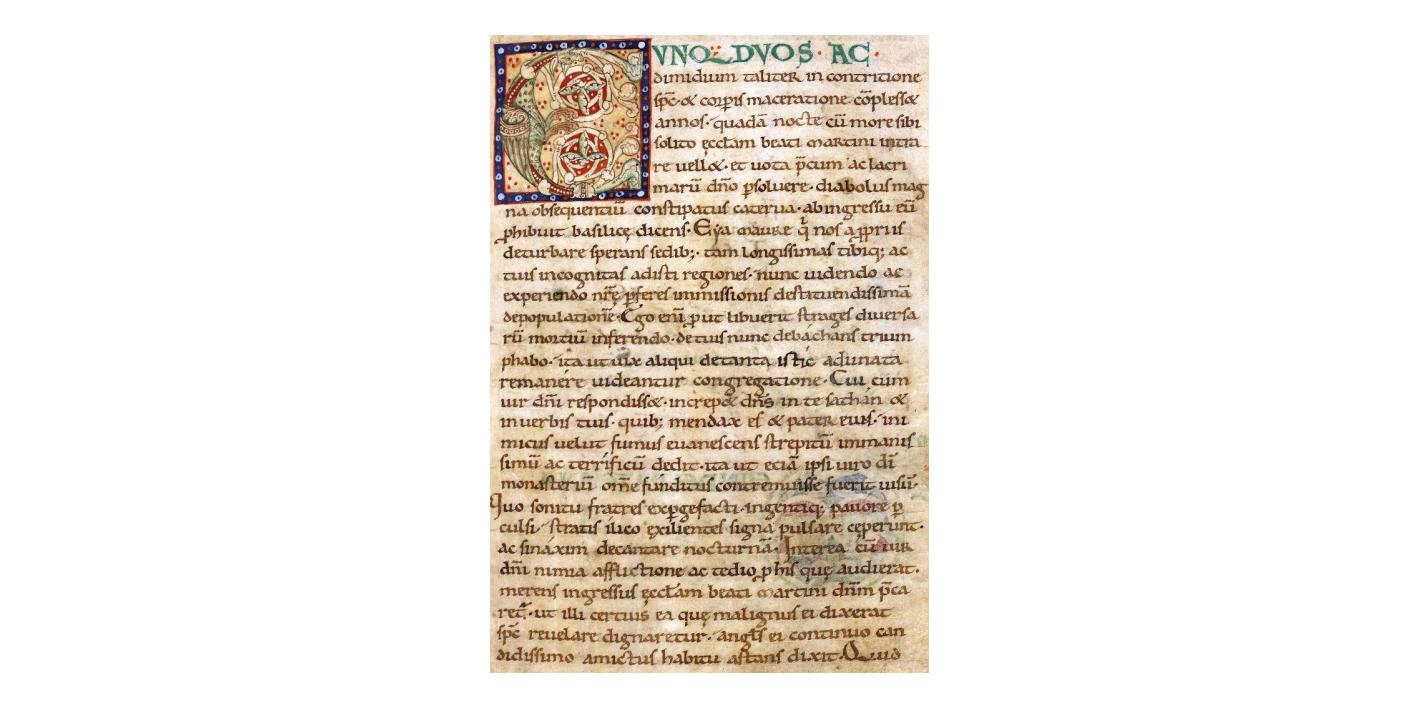 CVNQ DVOS · AC ·
dimidium taliter in contritione
sp̄c · & corꝑis maceratione cōpless&
annos · quadā nocte cū more sibi
solito ęcclam beati martini intra
re uell& · et uota p̄cum ac lacri
marū dn̄o ꝑsoluere · diabolus mag
na obsequentiū constipatus caterua · ab ingressu eū
ꝓhibuit basilicę dicens · Eya maure q̇ nos a ꝓpriis
deturbare sperans sedib; · tam longissimas tibiq; ac
tuis incognitas adisti regiones · nunc uidendo ac
experiendo nr̄ę ꝑferes immissionis destituendissimā
depopulationē · Ego eni ꝓut libuerit strages diuersa
rū mortiū inferendo · de tuis nunc debachans trium
phabo · ita ut uix aliqui de tanta istic adunata
remanere uideantur congregatione · Cui cum
uir dn̄i respondiss& · increp& dn̄s in te sathan &
in uerbis tuis · quib; mendax es & pater eius · ini
micus uelut fumus euanescens strepitū immanis
simū ac terrificū dedit · ita ut eciā ipsi uiro dī
monasteriū om̄e funditus contremuisse fuerit uisū ·
Quo sonitu fratres exꝑgefacti · ingentiq; pauore ꝑ
culsi · stratis ilico exilientes signa pulsare ceperunt ·
ac sinaxim decantare nocturnā · Interea cū uir
dn̄i nimia afflictione ac tedio ꝑ his quę audierat ·
merens ingressus ęcclam beati martini dn̄m p̄ca
ret̄ · ut illi certius ea quę malignus ei dixerat
sp̄c reuelare dignaretur · angls ei continuo can
didissimo amictus habitu astans dixit · Quid